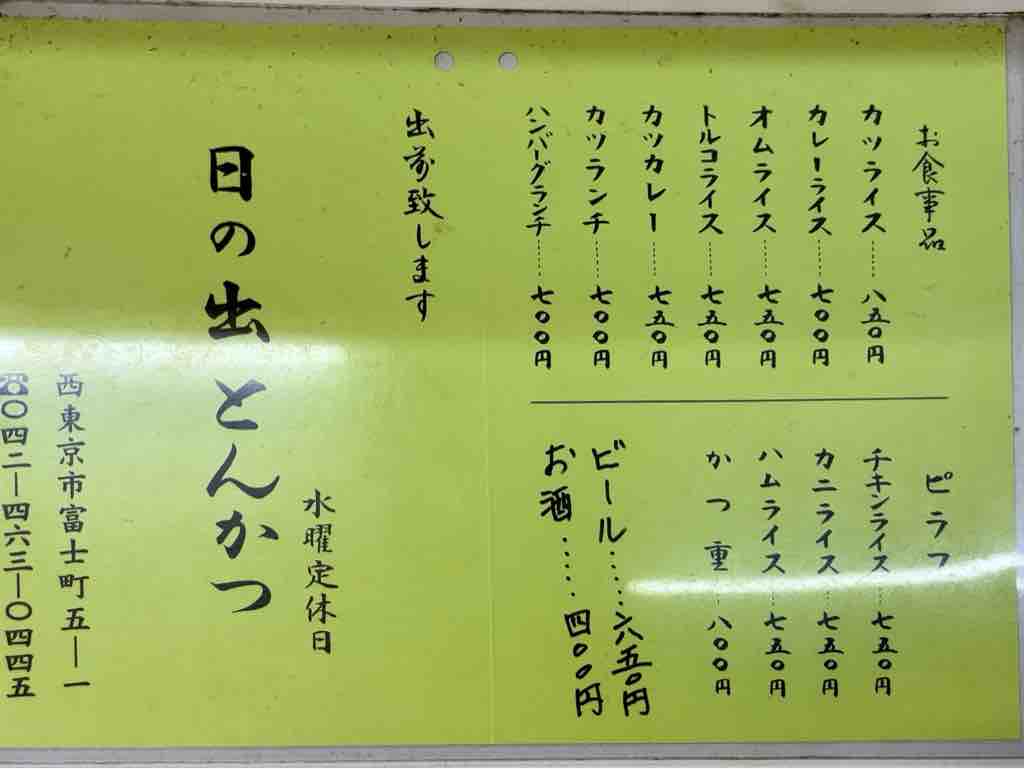 お食事品
カツライス……八五〇円
カレーライス……七〇〇円
オムライス……七五〇円
トルコライス……七五〇円
カツカレー……七五〇円
カツランチ……七〇〇円
ハンバーグランチ……七〇〇円
ピラフ
チキンライス……七五〇円
カニライス……七五〇円
ハムライス……七五〇円
かつ重……八〇〇円
ビール……六五〇円
お酒……四〇〇円
出前致します
水曜定休日
日の出とんかつ
西東京市富士町五―一
☎〇四二―四六三―〇四四五